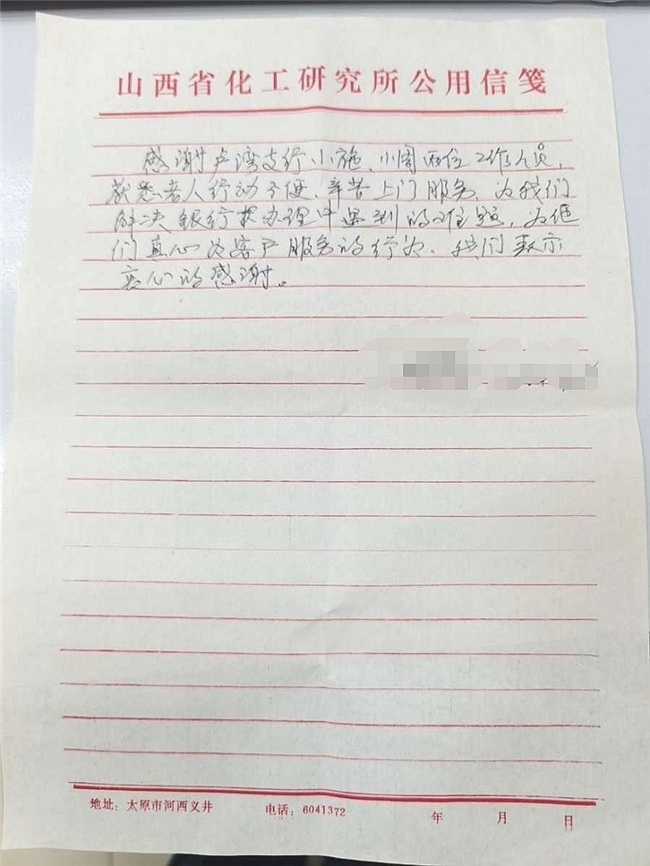 山西省化工研究所公用信笺
感谢卢湾支行小施、小周两位工作人员,
获悉老人行动不便、辛苦上门服务、为我们
解决银行卡办理中遇到的难题,为他
们真心为客户服务的行为、我们表示
衷心的感谢。
地址:太原市河西义井 电话:6041372 年 月 日